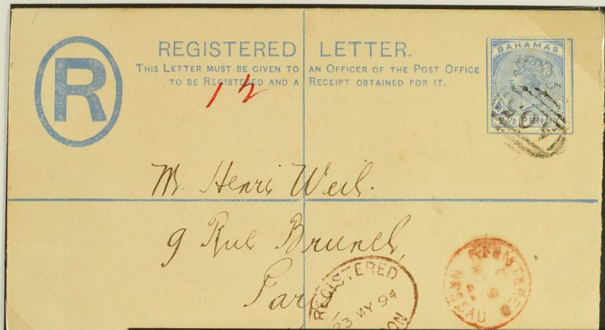 REGISTERED LETTER.
THIS LETTER MUST BE GIVEN TO AN OFFICER OF THE POST OFFICE
TO BE REGISTERED AND A RECEIPT OBTAINED FOR IT.
R
BAHAMAS
1 1/2
M. Henri Weil.
9 Rue Brunel,
Paris
REGISTERED
23 MY 94
REGISTERED
NASSAU